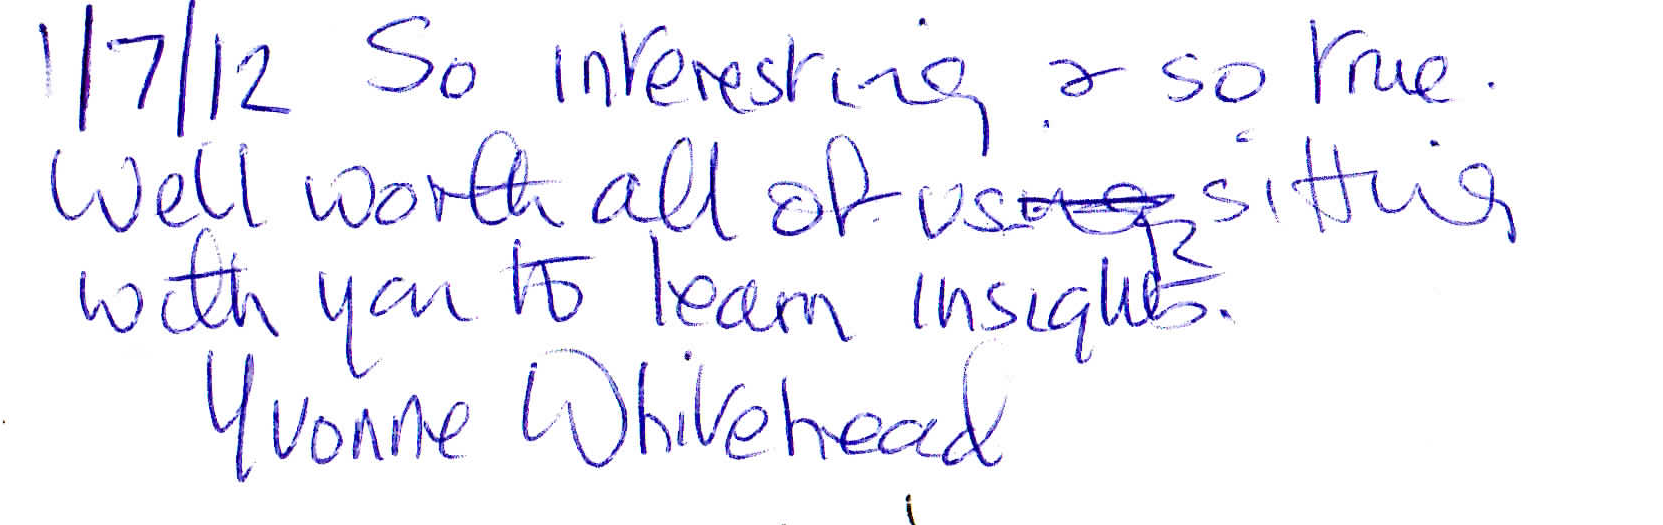 1/7/12 So interesting & so true.
Well worth all of us sitting
with you to learn insights.
Yvonne Whitehead